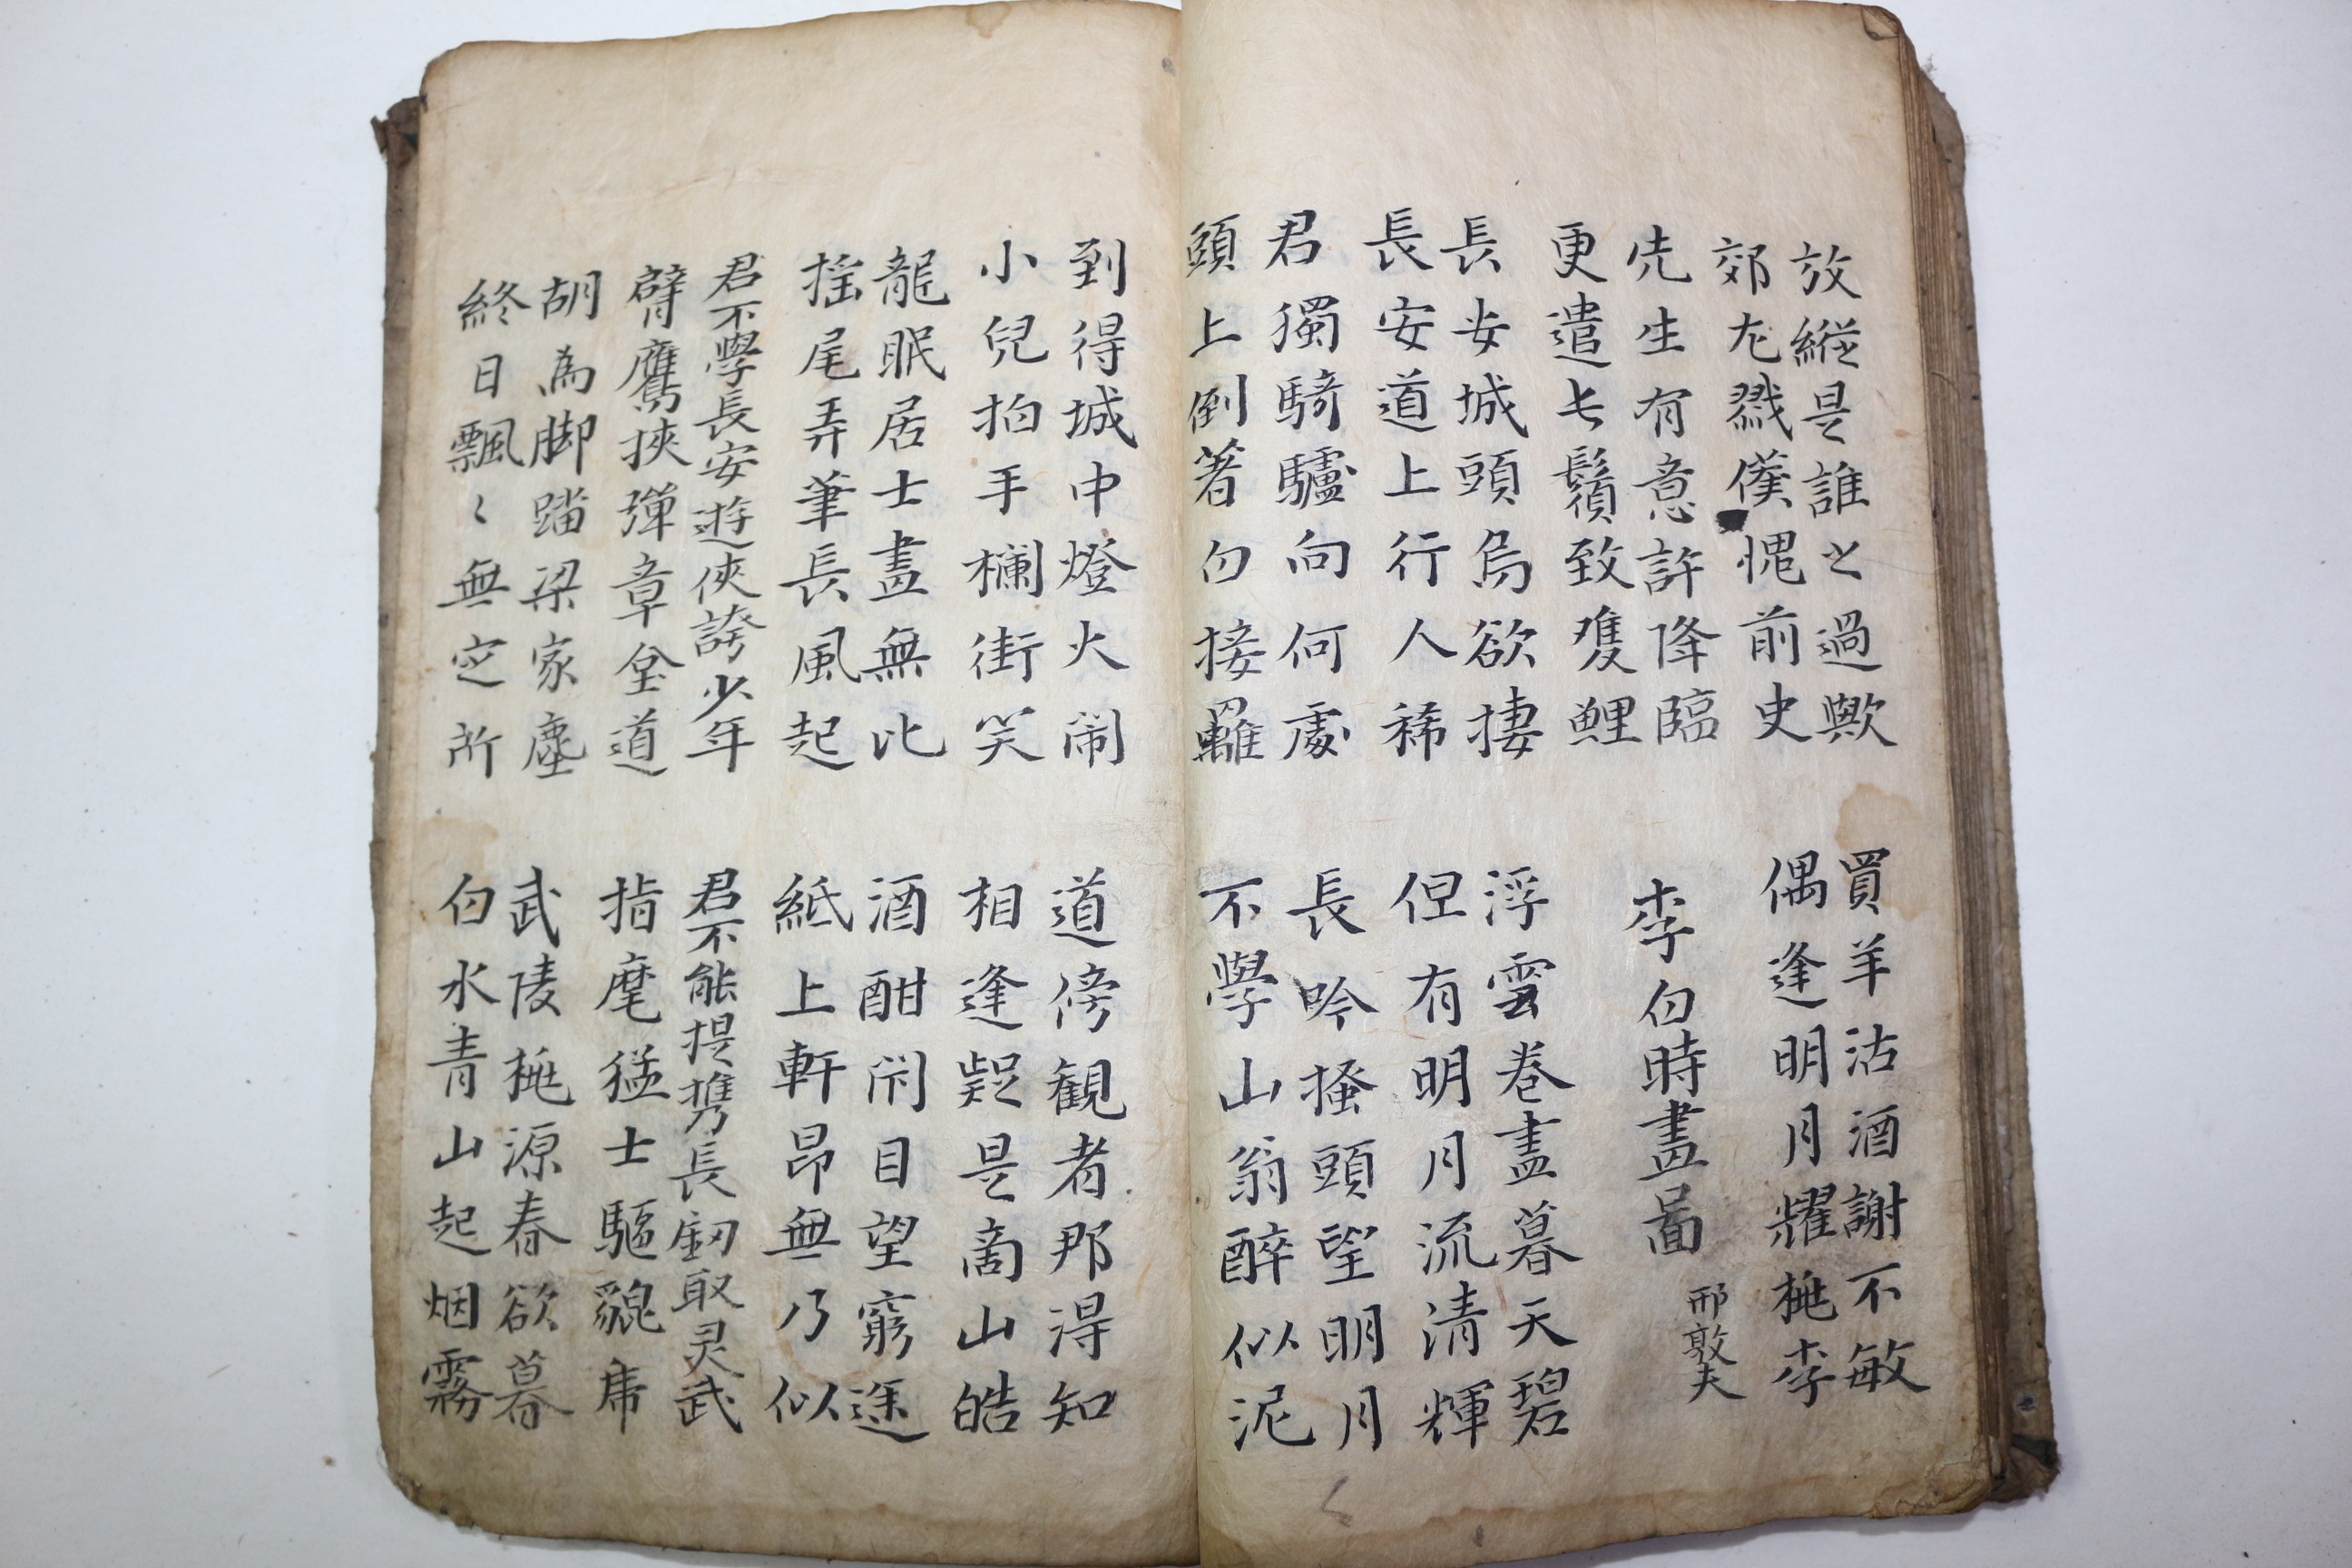 放縱是誰之過歟
郊尤戮僕愧前史
買羊沽酒謝不敏
偶逢明月耀桃李
先生有意許降臨
更遣長鬚致雙鯉
李白時畫啚 邢敦夫
長安城頭烏欲捿
長安道上行人稀
浮雲卷盡暮天碧
但有明月流清輝
君獨騎驢向何處
頭上倒著白接羅
長吟搔頭望明月
不學山翁醉似泥
到得城中燈火鬧
小兒拍手欄街笑
道傍観者那得知
相逢疑是商山皓
龍眠居士畫無比
揺尾弄筆長風起
酒酣閉目望窮途
紙上軒昂無乃似
君不學長安遊俠誇少年
臂鷹挾彈章坮道
君不能提携長釼取灵武
指麾猛士驅貌乕
胡為脚踏梁家塵
終日飄〻無定所
武陵桃源春欲暮
白水青山起烟霧